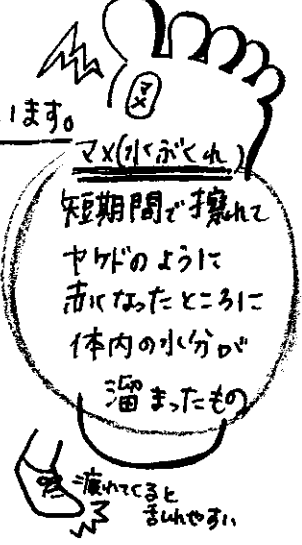 マメ
います。
マメ(水ぶくれ)
短期間で擦れて
ヤケドのように
赤くなったところに
体内の水分が
溜まったもの
疲れてくると